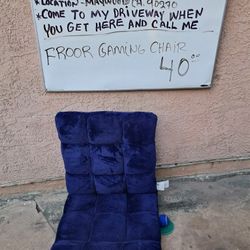 *LOCATION - MAYWOOD CA. 90270
*COME TO MY DRIVEWAY WHEN
YOU GET HERE AND CALL ME
FROOR GAMING CHAIR
40⁰⁰